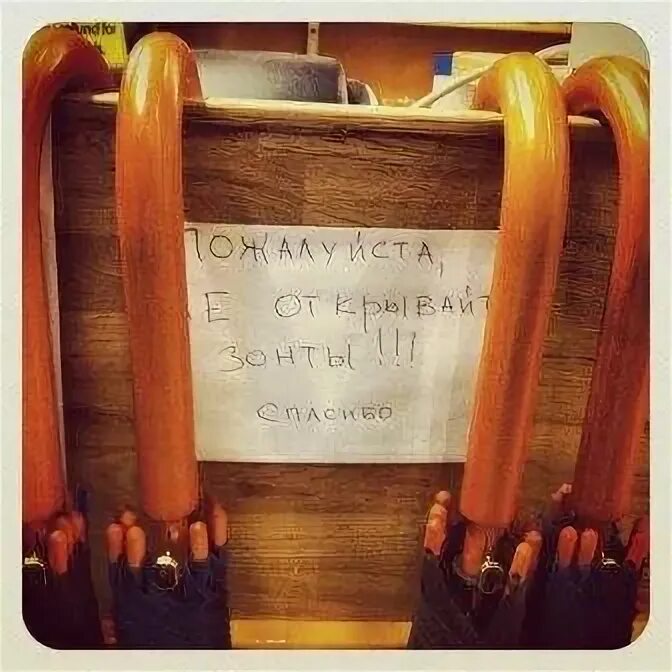 ПОЖАЛУЙСТА,
НЕ ОТКРЫВАЙТ
ЗОНТЫ!!!
СПАСИБО